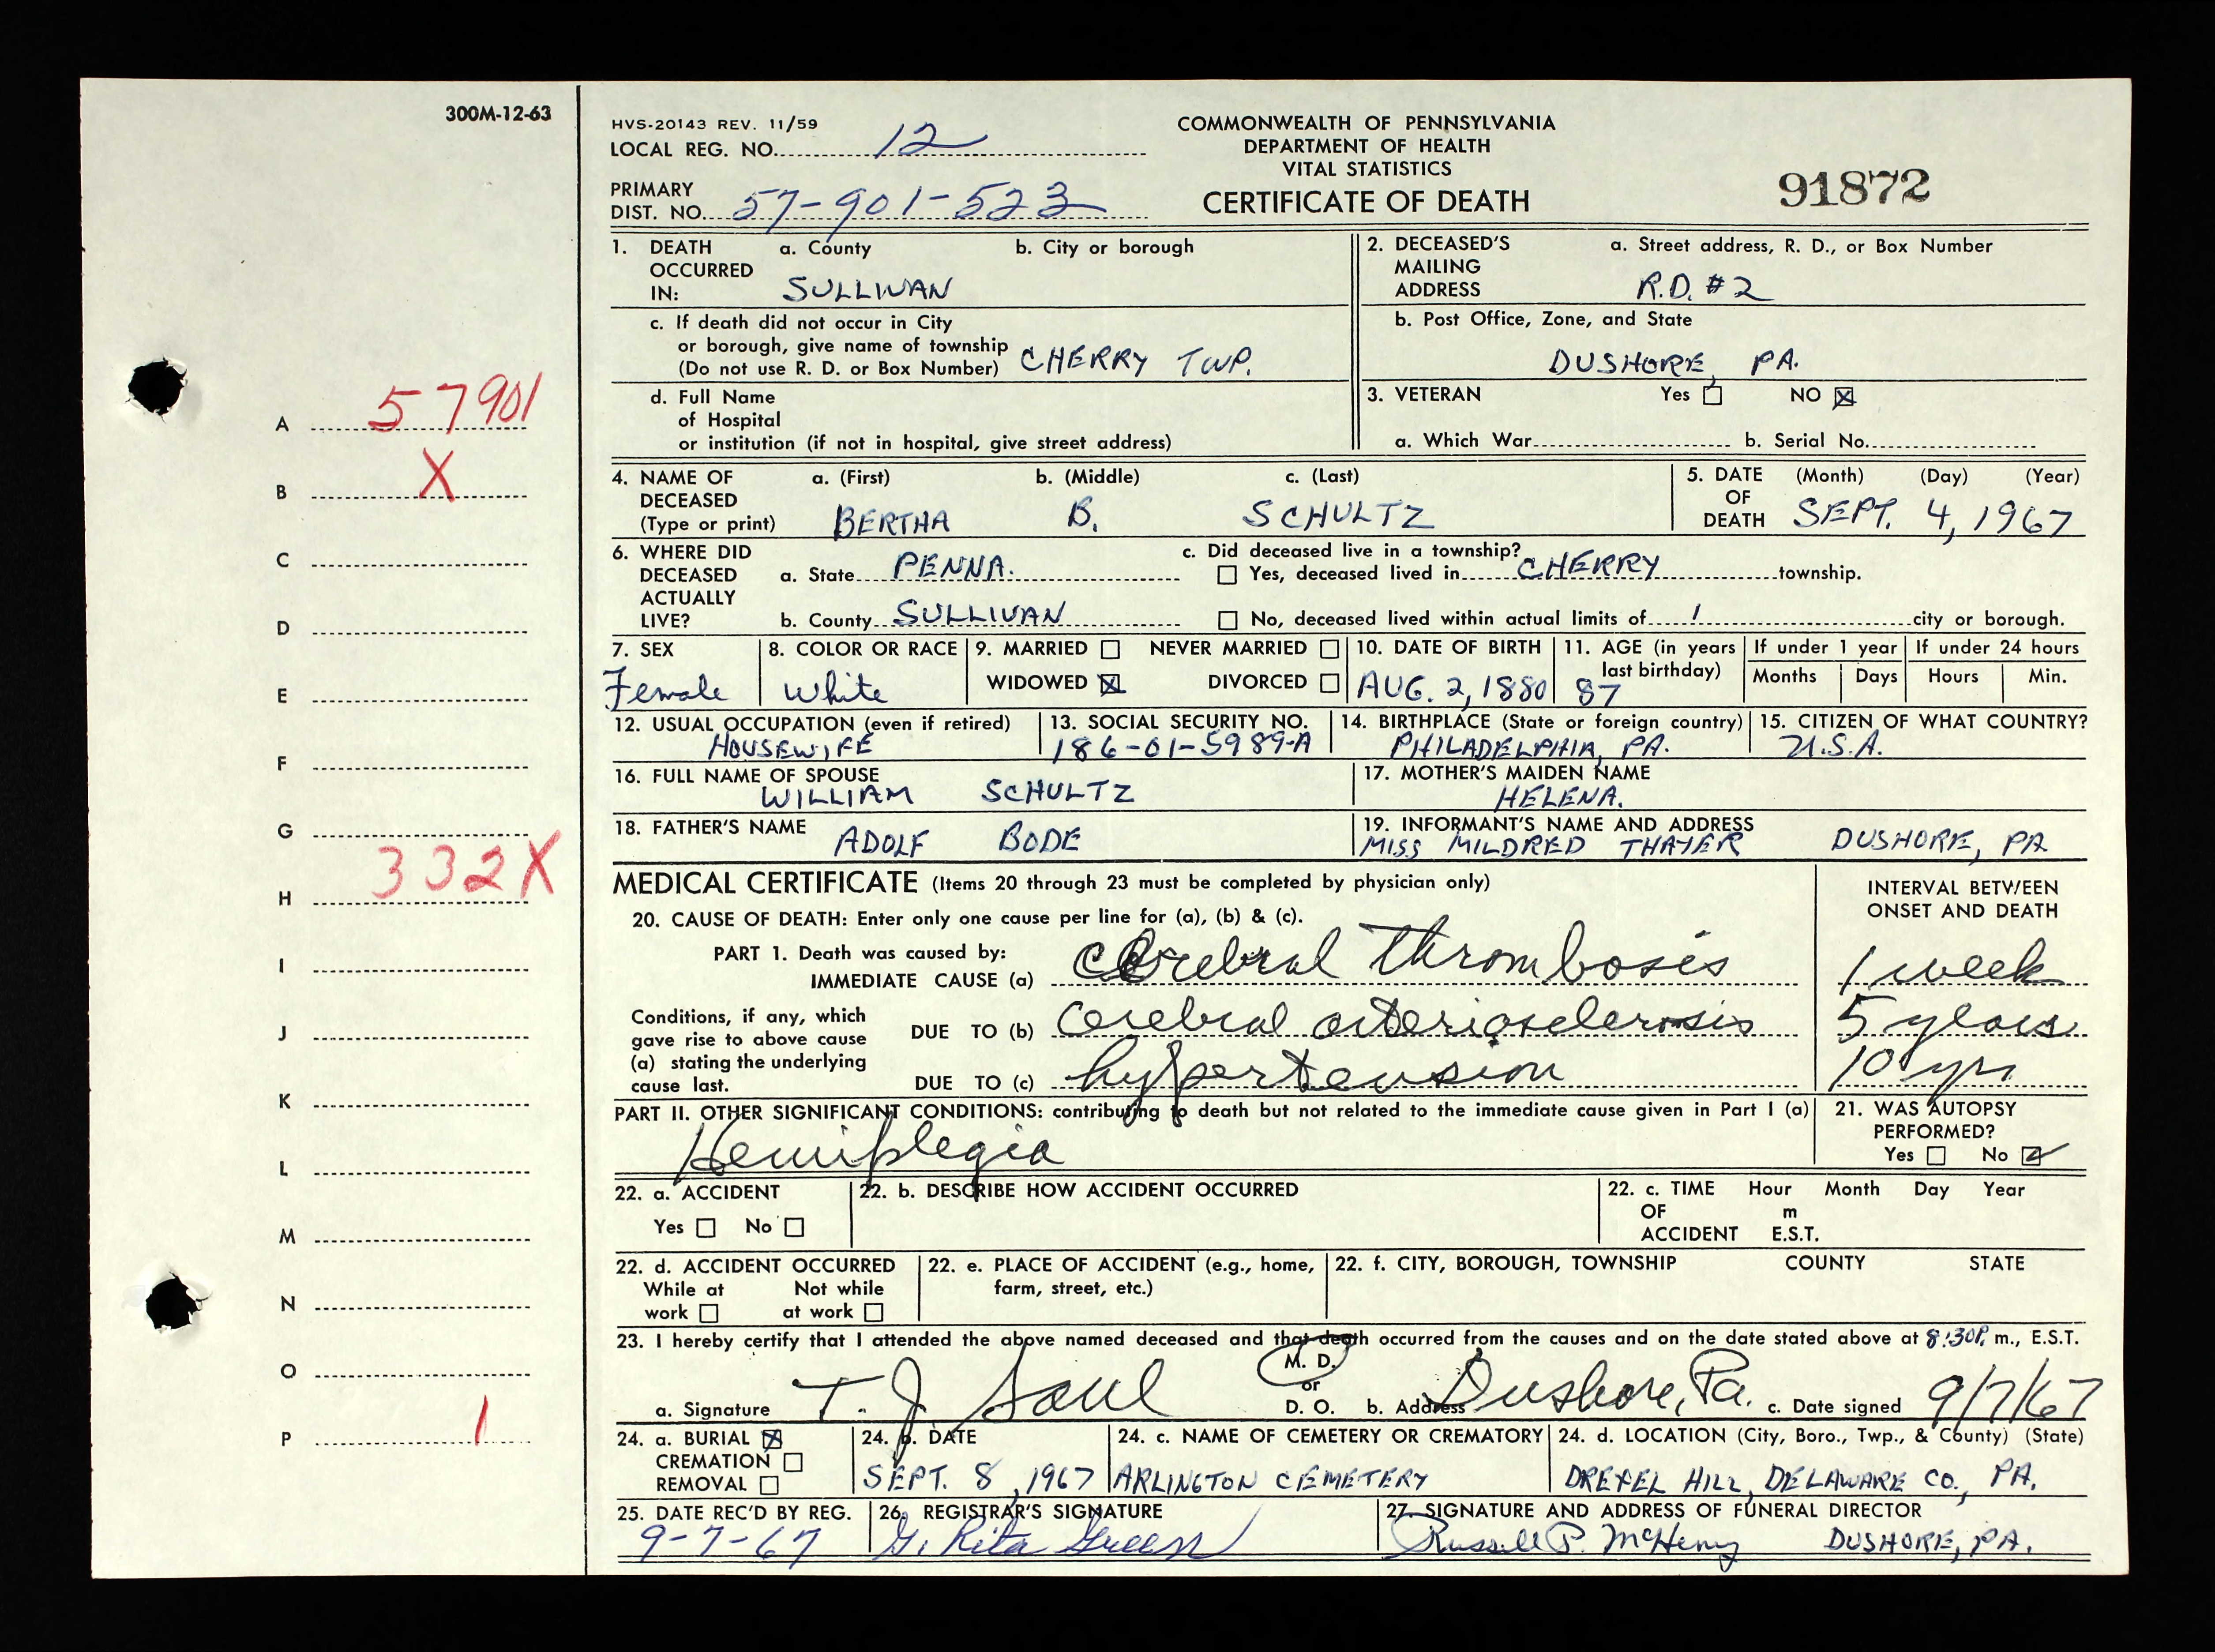 300M-12-63
HVS-20143 REV. 11/59
LOCAL REG. NO. 12
PRIMARY
DIST. NO. 57-901-523
COMMONWEALTH OF PENNSYLVANIA
DEPARTMENT OF HEALTH
VITAL STATISTICS
CERTIFICATE OF DEATH
91872
1. DEATH OCCURRED IN: a. County b. City or borough
SULLIVAN
c. If death did not occur in City
or borough, give name of township
(Do not use R. D. or Box Number) CHERRY TWP.
d. Full Name
of Hospital
or institution (if not in hospital, give street address)
2. DECEASED'S MAILING ADDRESS a. Street address, R. D., or Box Number
R.D. #2
b. Post Office, Zone, and State
DUSHORE, PA.
3. VETERAN Yes ☐ NO ☒
a. Which War b. Serial No.
4. NAME OF DECEASED (Type or print) a. (First) b. (Middle) c. (Last)
BERTHA B. SCHULTZ
5. DATE OF DEATH (Month) (Day) (Year)
SEPT. 4, 1967
6. WHERE DID DECEASED ACTUALLY LIVE?
a. State PENNA.
b. County SULLIVAN
c. Did deceased live in a township?
☐ Yes, deceased lived in CHERRY township.
☐ No, deceased lived within actual limits of 1 city or borough.
7. SEX
Female
8. COLOR OR RACE
White
9. MARRIED ☐ NEVER MARRIED ☐
WIDOWED ☒ DIVORCED ☐
10. DATE OF BIRTH
AUG. 2, 1880
11. AGE (in years last birthday)
87
If under 1 year
Months Days
If under 24 hours
Hours Min.
12. USUAL OCCUPATION (even if retired)
HOUSEWIFE
13. SOCIAL SECURITY NO.
186-01-5989-A
14. BIRTHPLACE (State or foreign country)
PHILADELPHIA, PA.
15. CITIZEN OF WHAT COUNTRY?
U.S.A.
16. FULL NAME OF SPOUSE
WILLIAM SCHULTZ
17. MOTHER'S MAIDEN NAME
HELENA.
18. FATHER'S NAME
ADOLF BODE
19. INFORMANT'S NAME AND ADDRESS
MISS MILDRED THAYER DUSHORE, PA
MEDICAL CERTIFICATE (Items 20 through 23 must be completed by physician only)
INTERVAL BETWEEN
ONSET AND DEATH
20. CAUSE OF DEATH: Enter only one cause per line for (a), (b) & (c).
PART 1. Death was caused by:
IMMEDIATE CAUSE (a) Cerebral Thrombosis 1 week
Conditions, if any, which
gave rise to above cause
(a) stating the underlying
cause last.
DUE TO (b) Cerebral arteriosclerosis 5 years
DUE TO (c) hypertension 10 yrs
PART II. OTHER SIGNIFICANT CONDITIONS: contributing to death but not related to the immediate cause given in Part I (a)
Hemiplegia
21. WAS AUTOPSY
PERFORMED?
Yes ☐ No ☑
22. a. ACCIDENT
Yes ☐ No ☐
22. b. DESCRIBE HOW ACCIDENT OCCURRED
22. c. TIME OF ACCIDENT Hour Month Day Year
m
E.S.T.
22. d. ACCIDENT OCCURRED
While at work ☐ Not while at work ☐
22. e. PLACE OF ACCIDENT (e.g., home, farm, street, etc.)
22. f. CITY, BOROUGH, TOWNSHIP COUNTY STATE
23. I hereby certify that I attended the above named deceased and that death occurred from the causes and on the date stated above at 8:30P. m., E.S.T.
a. Signature T. J. Saul M. D. or D. O. b. Address Dushore, Pa. c. Date signed 9/7/67
24. a. BURIAL ☒
CREMATION ☐
REMOVAL ☐
24. b. DATE
SEPT. 8, 1967
24. c. NAME OF CEMETERY OR CREMATORY
ARLINGTON CEMETERY
24. d. LOCATION (City, Boro., Twp., & County) (State)
DREXEL HILL, DELAWARE CO., PA.
25. DATE REC'D BY REG.
9-7-67
26. REGISTRAR'S SIGNATURE
G. Rita Green
27. SIGNATURE AND ADDRESS OF FUNERAL DIRECTOR
Russell P. McHenry DUSHORE, PA.
A 57901
B X
C
D
E
F
G
H 332X
I
J
K
L
M
N
O
P 1